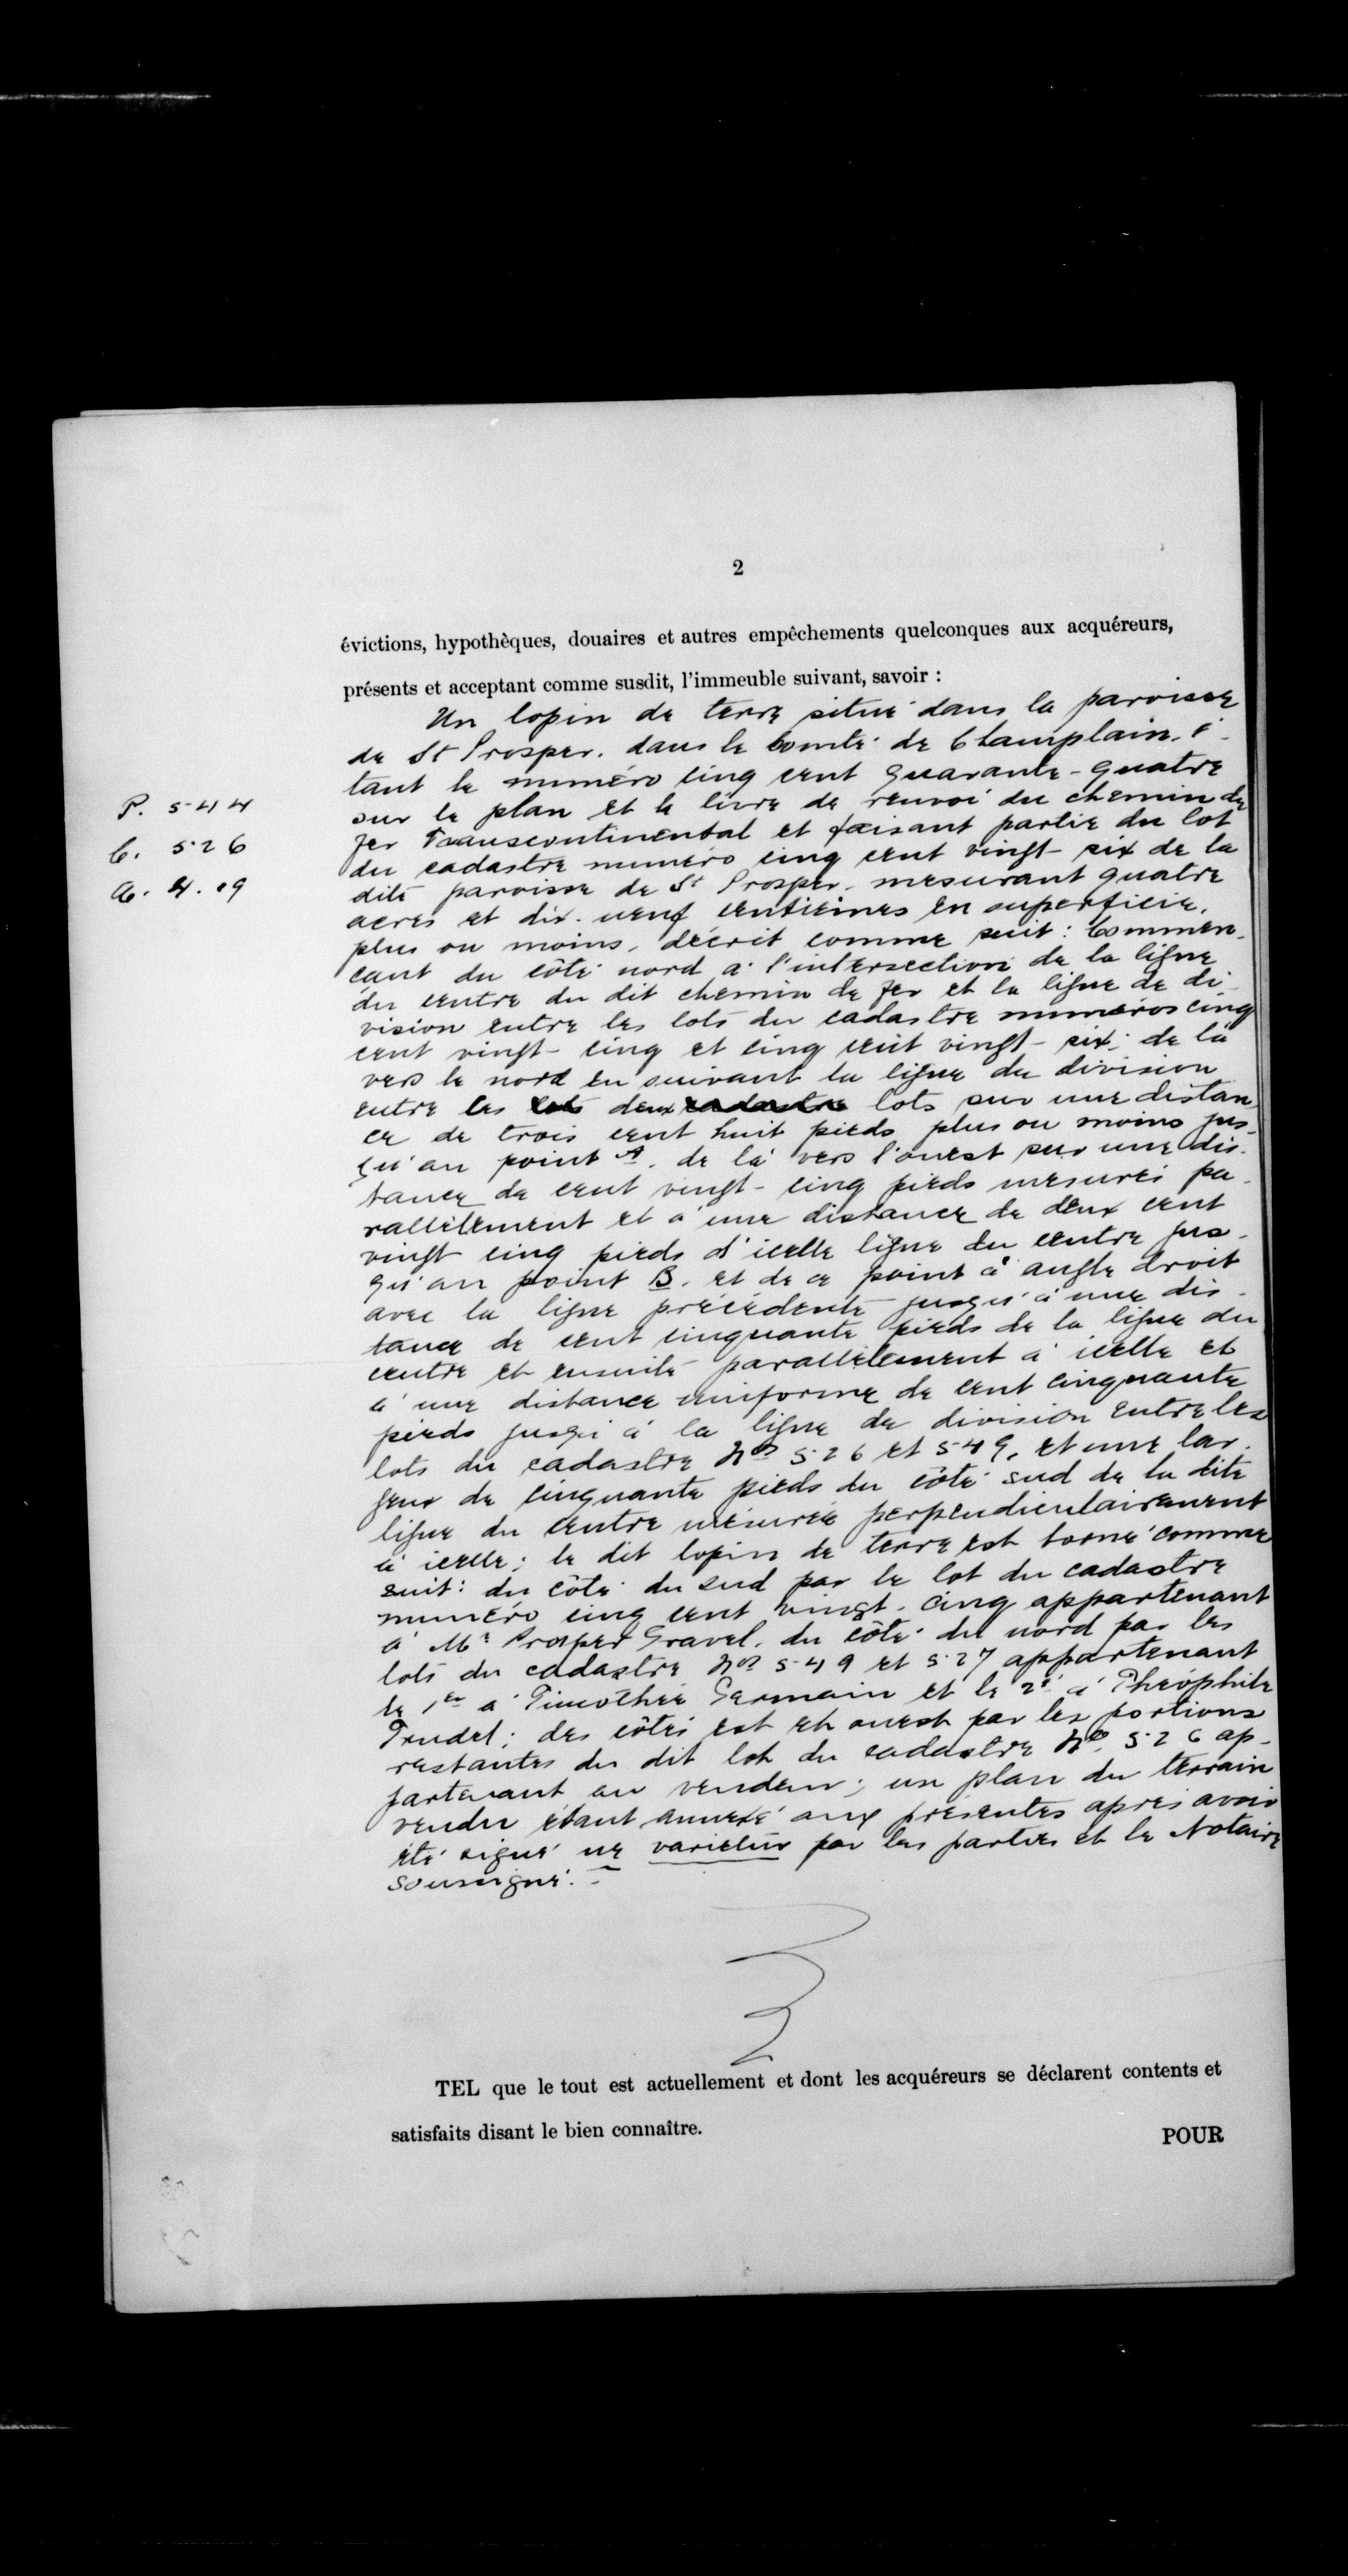 2
évictions, hypothèques, douaires et autres empêchements quelconques aux acquéreurs,
présents et acceptant comme susdit, l'immeuble suivant, savoir :
Un lopin de terre situé dans la paroisse
de St Prosper. dans le Comté de Champlain. é-
tant le numéro cinq cent quarante-quatre
P. 544
sur le plan et le livre de renvoi du chemin de
fer Transcontinental et faisant partie du lot
C. 526
du cadastre numéro cinq cent vingt-six de la
A. 4.19
dite paroisse de St Prosper. mesurant quatre
acres et dix-neuf centièmes en superficie,
plus ou moins, décrit comme suit : Commen-
cant du côté nord à l'intersection de la ligne
du centre du dit chemin de fer et la ligne de di-
vision entre les lots du cadastre numéros cinq
cent vingt-cinq et cinq cent vingt-six; de là
vers le nord en suivant la ligne de division
entre les lots deux cadastre lots sur une distan
ce de trois cent huit pieds plus ou moins jus-
qu'au point A. de là vers l'ouest sur une dis-
tance de cent vingt-cinq pieds mesurés pa-
rallèlement et à une distance de deux cent
vingt cinq pieds d'icelle ligne du centre jus-
qu'au point B. et de ce point à angle droit
avec la ligne précédente jusqu'à une dis-
tance de cent cinquante pieds de la ligne du
centre et ensuite parallèlement à icelle et
à une distance uniforme de cent cinquante
pieds jusqu'à la ligne de division entre les
lots du cadastre Nos 526 et 549, et une lar-
geur de cinquante pieds du côté sud de la dite
ligne du centre mesurée perpendiculairement
à icelle; le dit lopin de terre est borné comme
suit: du côté du sud par le lot du cadastre
numéro cinq cent vingt-cinq appartenant
à Mr Prosper Gravel. du côté du nord par les
lots du cadastre Nos 549 et 527 appartenant
le 1er à Timothée Germain et le 2e à Théophile
Trudel; des côtés est et ouest par les portions
restantes du dit lot du cadastre No. 526 ap-
partenant au vendeur; un plan du terrain
vendu étant annexé aux présentes après avoir
été signé ne varietur par les parties et le Notaire
soussigné. -
TEL que le tout est actuellement et dont les acquéreurs se déclarent contents et
satisfaits disant le bien connaître.
POUR